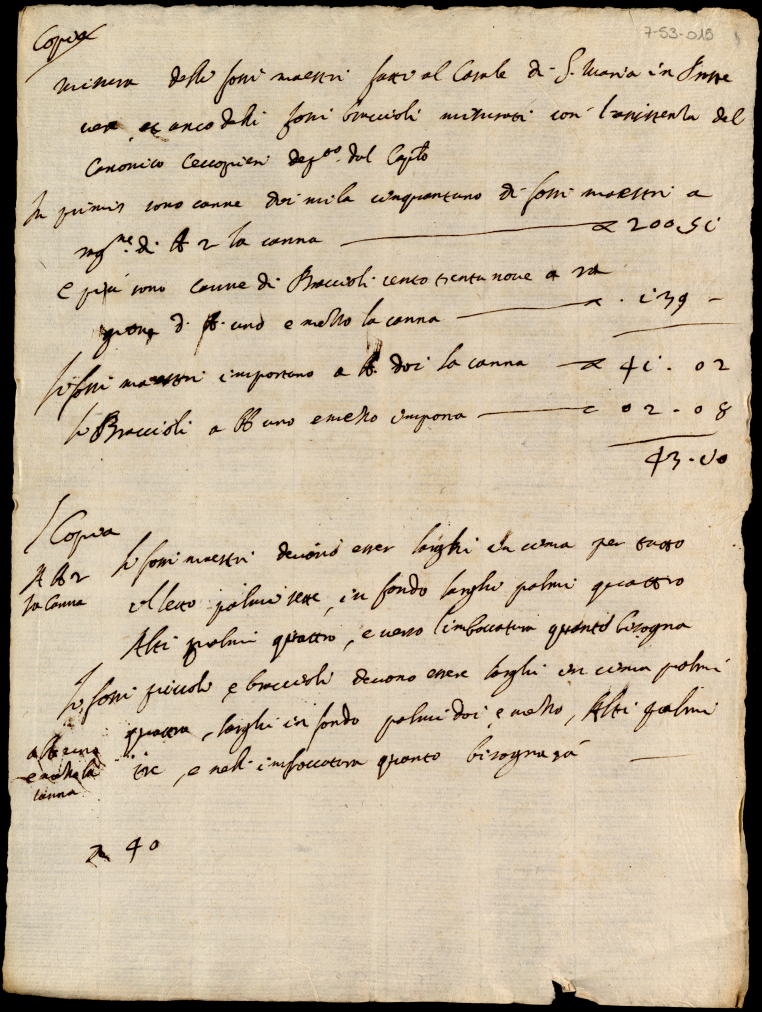 7-53-015
Copia
Misura delli fossi maestri fatti al Casale di S. Maria in Traste
vere, et anco delli fossi braccioli misurati con l'assistenza del
Canonico Ceccopieri dep.to dal Cap.lo
In primis sono canne doi mila cinquantuno di fossi maestri a
di B 2 la canna 2005i
E più sono canne di Braccioli cento trenta nove a ra
gione di B. uno e mezzo la canna . i39 -
Li fossi maestri importano a B. doi la canna 4i . 02
Li Braccioli a B uno e mezzo importa 02 . 08
43.i0
Copia
A B 2
la canna
Li fossi maestri devono esser larghi in cima per tutto
il letto palmi sette, in fondo larghi palmi quattro
Alti palmi quattro, e verso l'imboccatura quanto bisogna
Li fossi piccoli e braccioli devono essere larghi in cima palmi
quattro, larghi in fondo palmi doi e mezzo, Alti palmi
a B uno
e mezzo la
canna
tre, e nell'imboccatura quanto bisognarà
40